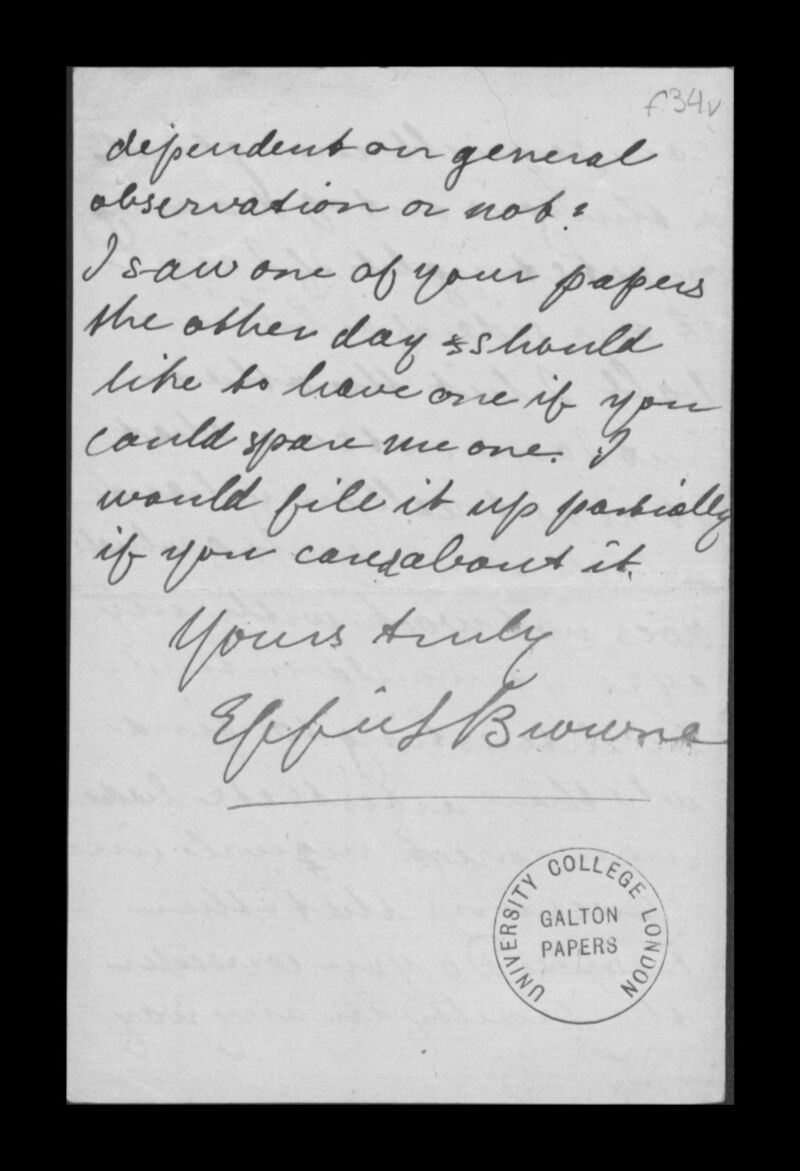 f34v
dependent on general
observation or not?
I saw one of your papers
the other day & should
like to have one if you
could spare me one. I
would fill it up partially
if you cared about it.
Yours truly
Browne
UNIVERSITY COLLEGE LONDON
GALTON
PAPERS